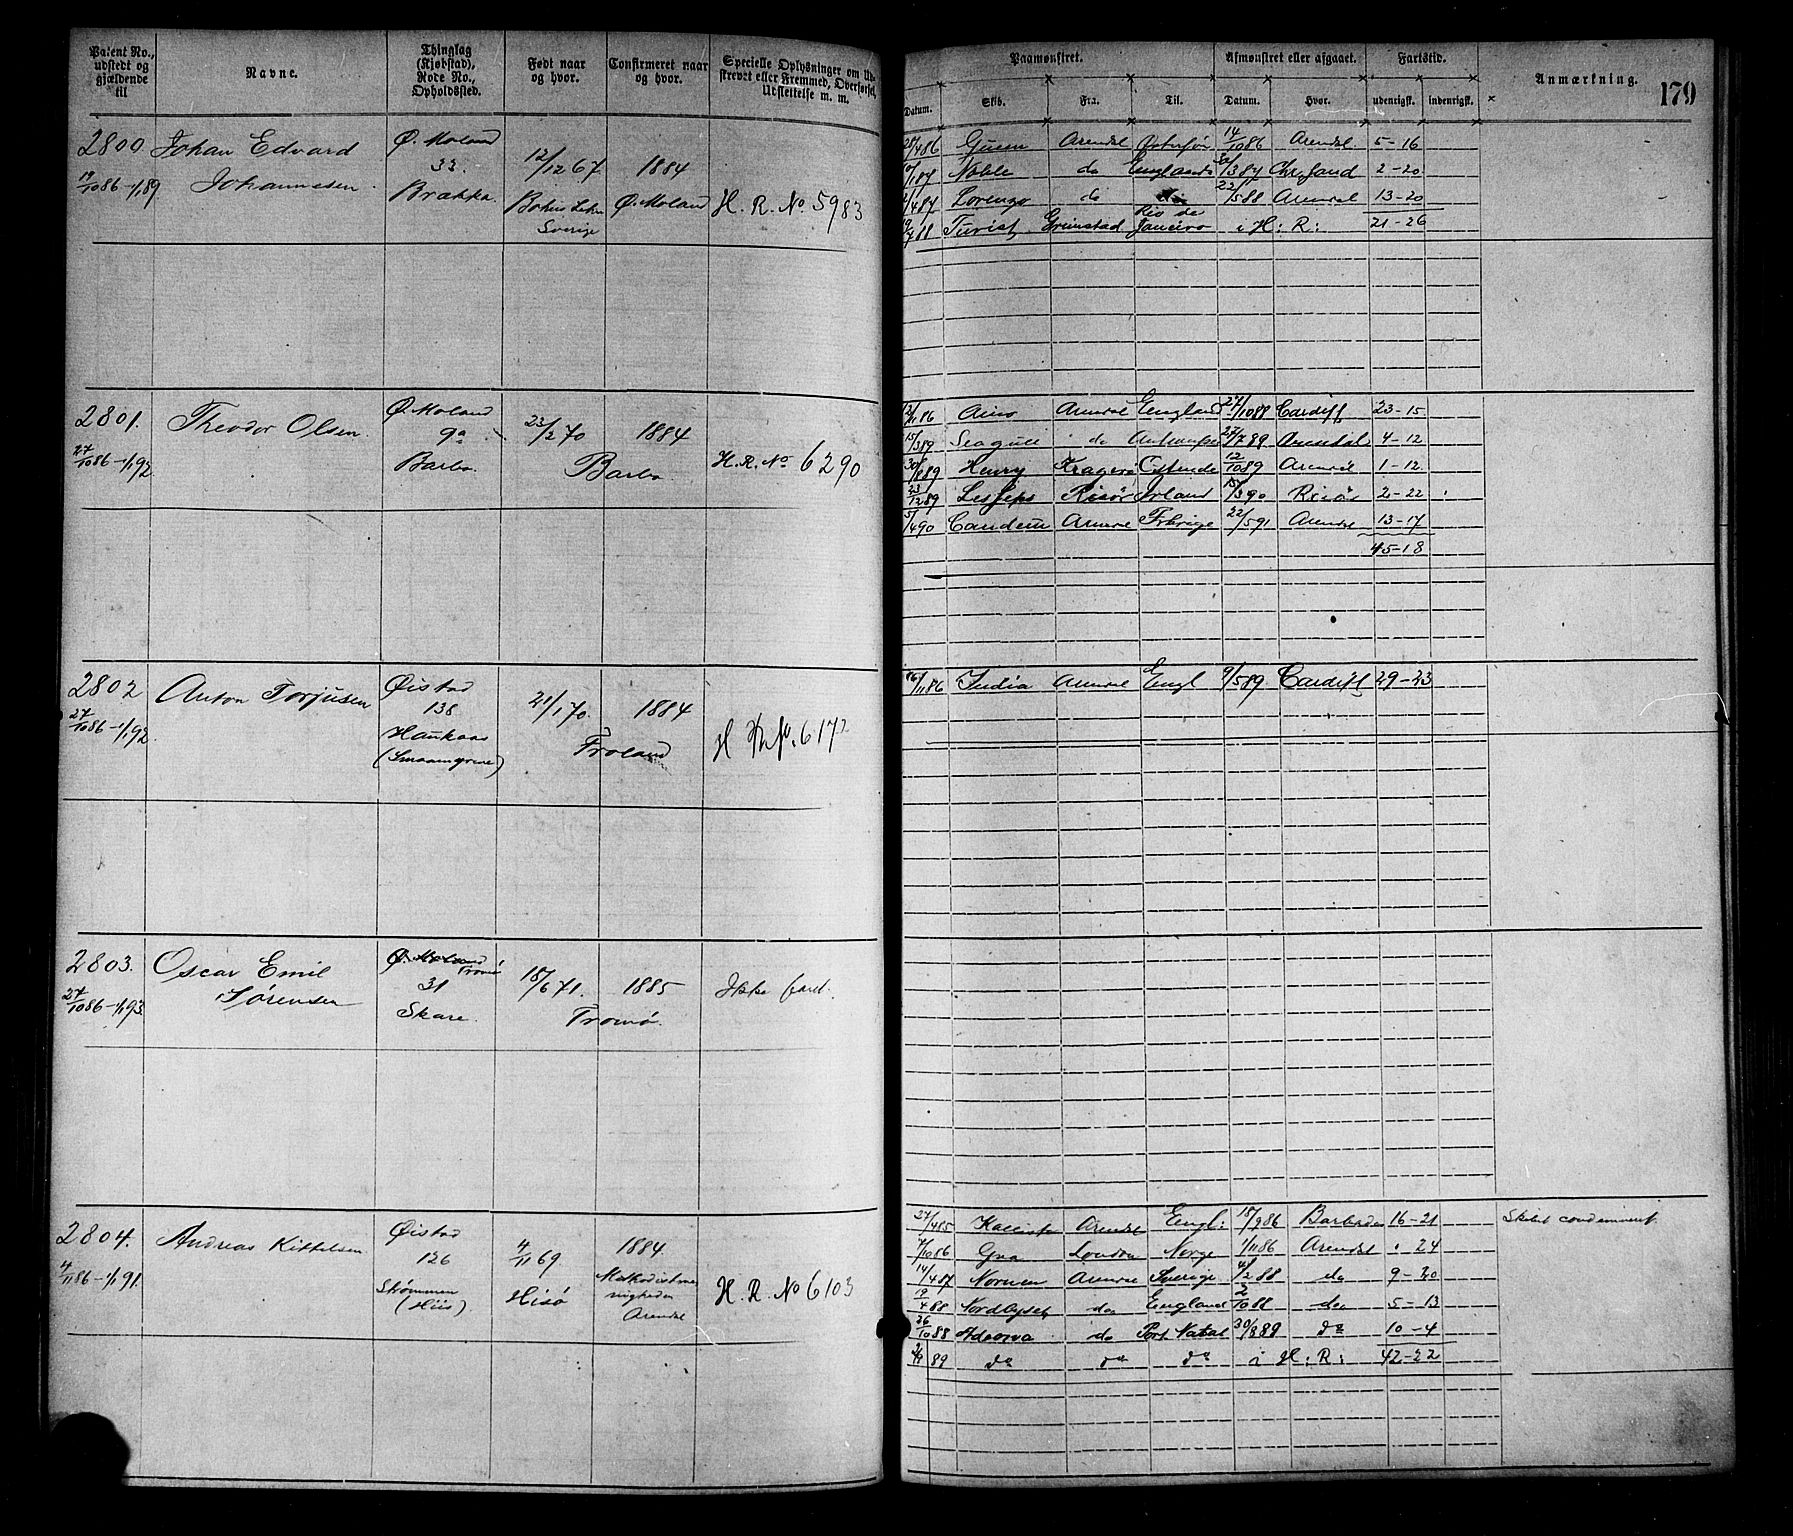 Patent No., udstedt og gjældende til
Navne.
Thinglag (Kjøbstad), Rode No., Opholdssted.
Født naar og hvor.
Confirmeret naar og hvor.
Specielle Oplysninger om Ud-
skrevet eller Fremmed, Overførsel,
Udslettelse m. m.
Paamønstret.
Afmønstret eller afgaaet.
Fartstid.
Anmærkning.
179
Datum. Skib. Fra. Til. Datum. Hvor. udenrigsk. indenrigsk.
2800. Johan Edvard Ø. Moland
19/10 86-1/1 89 Johannesen. 33. 12/12 67 1884
Brække. Øst. Moland H. R. No. 5983
Sverige
Arendal 14/10 86 Arendal 5-16
Noble do England /3 87 Chr.sand 2-20
/4 87 Lorenzo do 22/5 88 Arendal 13-20
Turist Grimstad Rio de Janeiro i H: R: 21-26
2801. Theodor Olsen. Ø. Moland 23/2 70 1884
27/10 86-1/1 92 9a
Barbo. Barbo. H. R. No 6290
12/11 86 Aino Arendal England 27/10 88 Cardiff 23-15
15/3 89 Seagull do 27/7 89 Arendal 4-12
30/8 89 Henry Kragerø Ostende 12/10 89 Arendal 1-12
23/12 89 Lesseps Risør Irland 15/3 90 Risør 2-22
5/4 90 Arendal 22/5 91 Arendal 13-17
45-18
2802 Anton Torjusen Øistad 21/1 70. 1884
27/10 86-1/1 92. 138
Haukaas Froland H R. No. 6172
(Smaamyrene)
16/11 86 India Arendal Engl 9/5 89 Cardiff 29-23
2803. Oscar Emil Ø. Moland
Tromø
27/10 86-1/1 93. Sørensen 31 18/6 71. 1885 Ikke fard.
Skare. Tromø.
2804. Andreas Kittelsen Øistad 4/11 69 1884
4/11 86-1/1 91. 126
Strømmen Hisø Methodistme-
(Hiis) nigheden
Arendal H. R. No 6103
27/4 85 Arendal Engl: 18/9 86 Barbados 16-21 Skibet condemneret
7/10 86 Gva London Norge 1/11 86 Arendal " 24
14/4 87 Nornen Arendal Sverige 4/2 88 do 9-20
19/4 88 Nordlyset do England 2/10 88 do 5-13
26/10 88 do Port Natal 30/8 89 do 10-4
89 do do do i H: R: 42-22